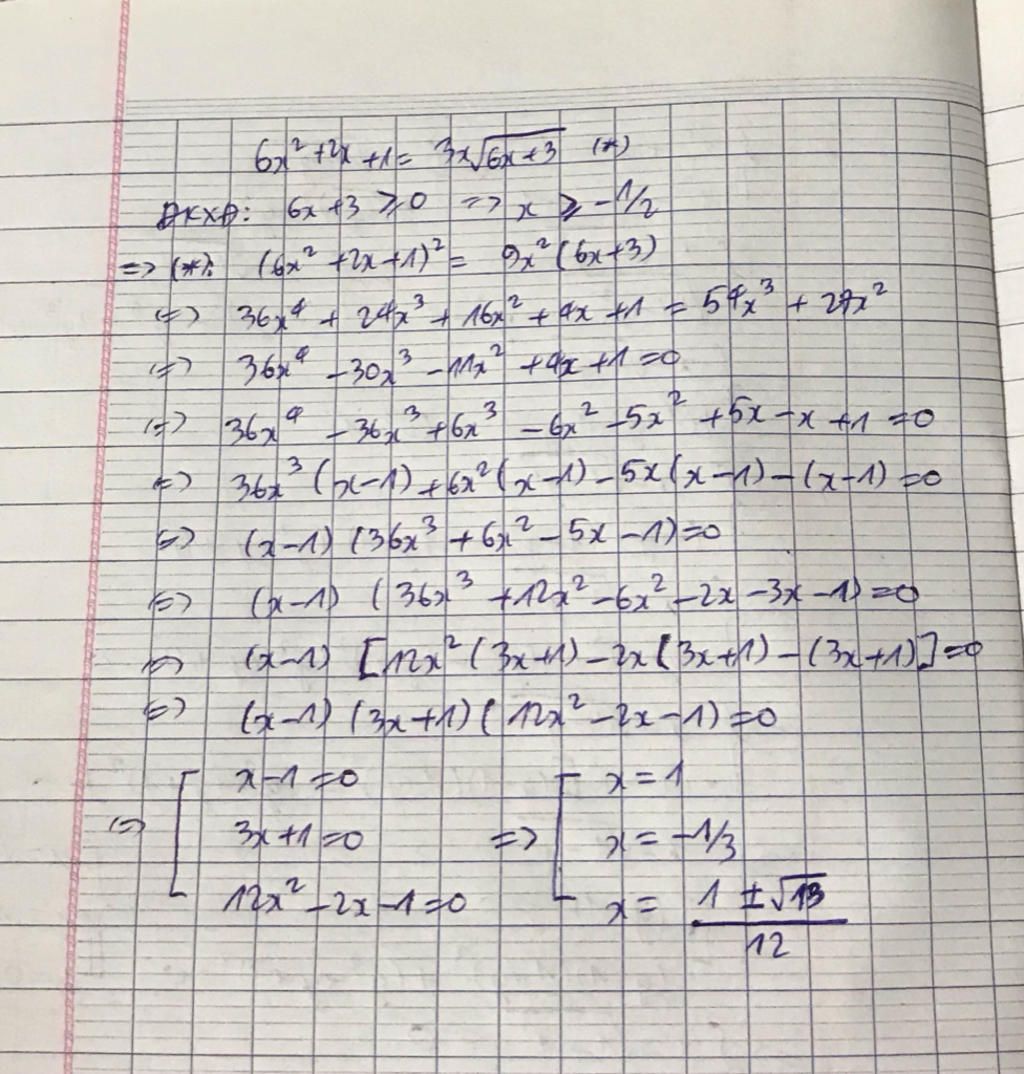 6x² + 2x + 1 = 3x√(6x + 3) (*)
ĐKXĐ: 6x + 3 ⩾ 0 => x ⩾ -1/2
=> (*): (6x² + 2x + 1)² = 9x² (6x + 3)
<=> 36x⁴ + 24x³ + 16x² + 4x + 1 = 54x³ + 27x²
<=> 36x⁴ - 30x³ - 11x² + 4x + 1 = 0
<=> 36x⁴ - 36x³ + 6x³ - 6x² - 5x² + 5x - x + 1 = 0
<=> 36x³ (x - 1) + 6x² (x - 1) - 5x (x - 1) - (x - 1) = 0
<=> (x - 1) (36x³ + 6x² - 5x - 1) = 0
<=> (x - 1) (36x³ + 12x² - 6x² - 2x - 3x - 1) = 0
<=> (x - 1) [12x² (3x + 1) - 2x (3x + 1) - (3x + 1)] = 0
<=> (x - 1) (3x + 1) (12x² - 2x - 1) = 0
<=> [ x - 1 = 0 => [ x = 1
3x + 1 = 0 x = -1/3
12x² - 2x - 1 = 0 x = (1 ± √13)/12